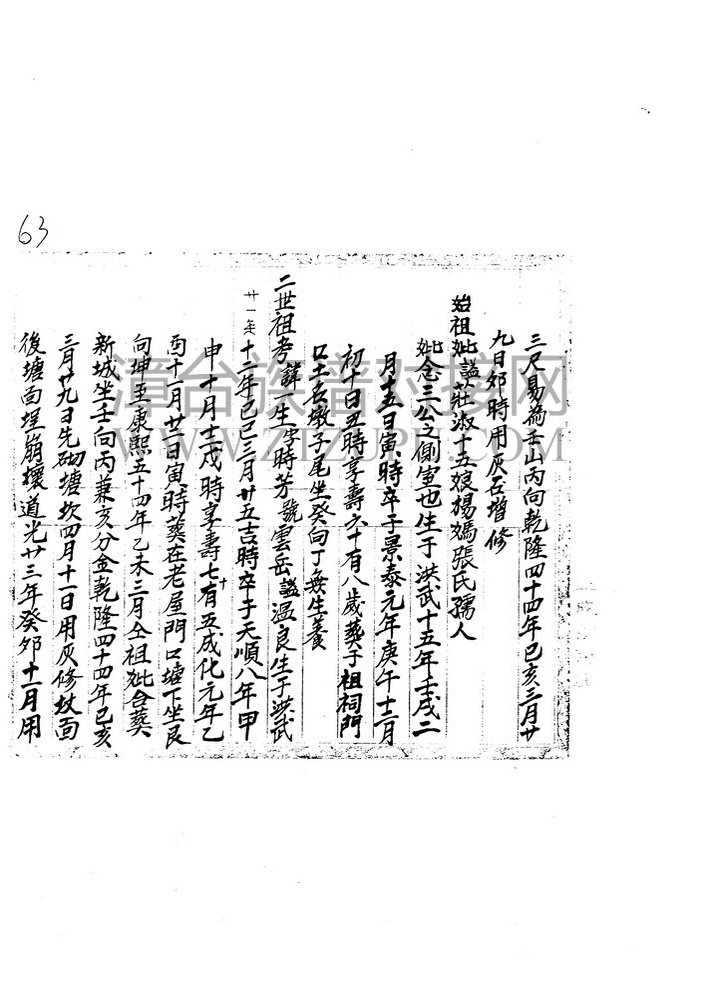 63
三尺易爲壬山丙向乾隆四十四年己亥三月廿
九日夘時用灰石增修
始祖妣謚莊淑十五娘揚媽張氏孺人
妣念三公之側室也生于洪武十五年壬戌二
月十五日寅時卒于景泰元年庚午十二月
初十日丑時享壽六十有八歲葬于祖祠門
口土名墩子尾坐癸向丁無生養
二世祖考諱一生字時芳號雲岳謚溫良生于洪武
廿一年
十二年己巳三月廿五吉時卒于天順八年甲
申十月十二戌時享壽七十有五成化元年乙
酉十一月廿二日寅時葵在老屋門口塘下坐艮
向坤至康熙五十四年乙未三月仝祖妣合葵
新城坐壬向丙兼亥分金乾隆四十四年己亥
三月廿九日先砌塘坎四月十一日用灰修坟面
後塘面埕崩壞道光廿三年癸夘十一月用
漳台族谱对接网
WWW.ZTZUPU.COM